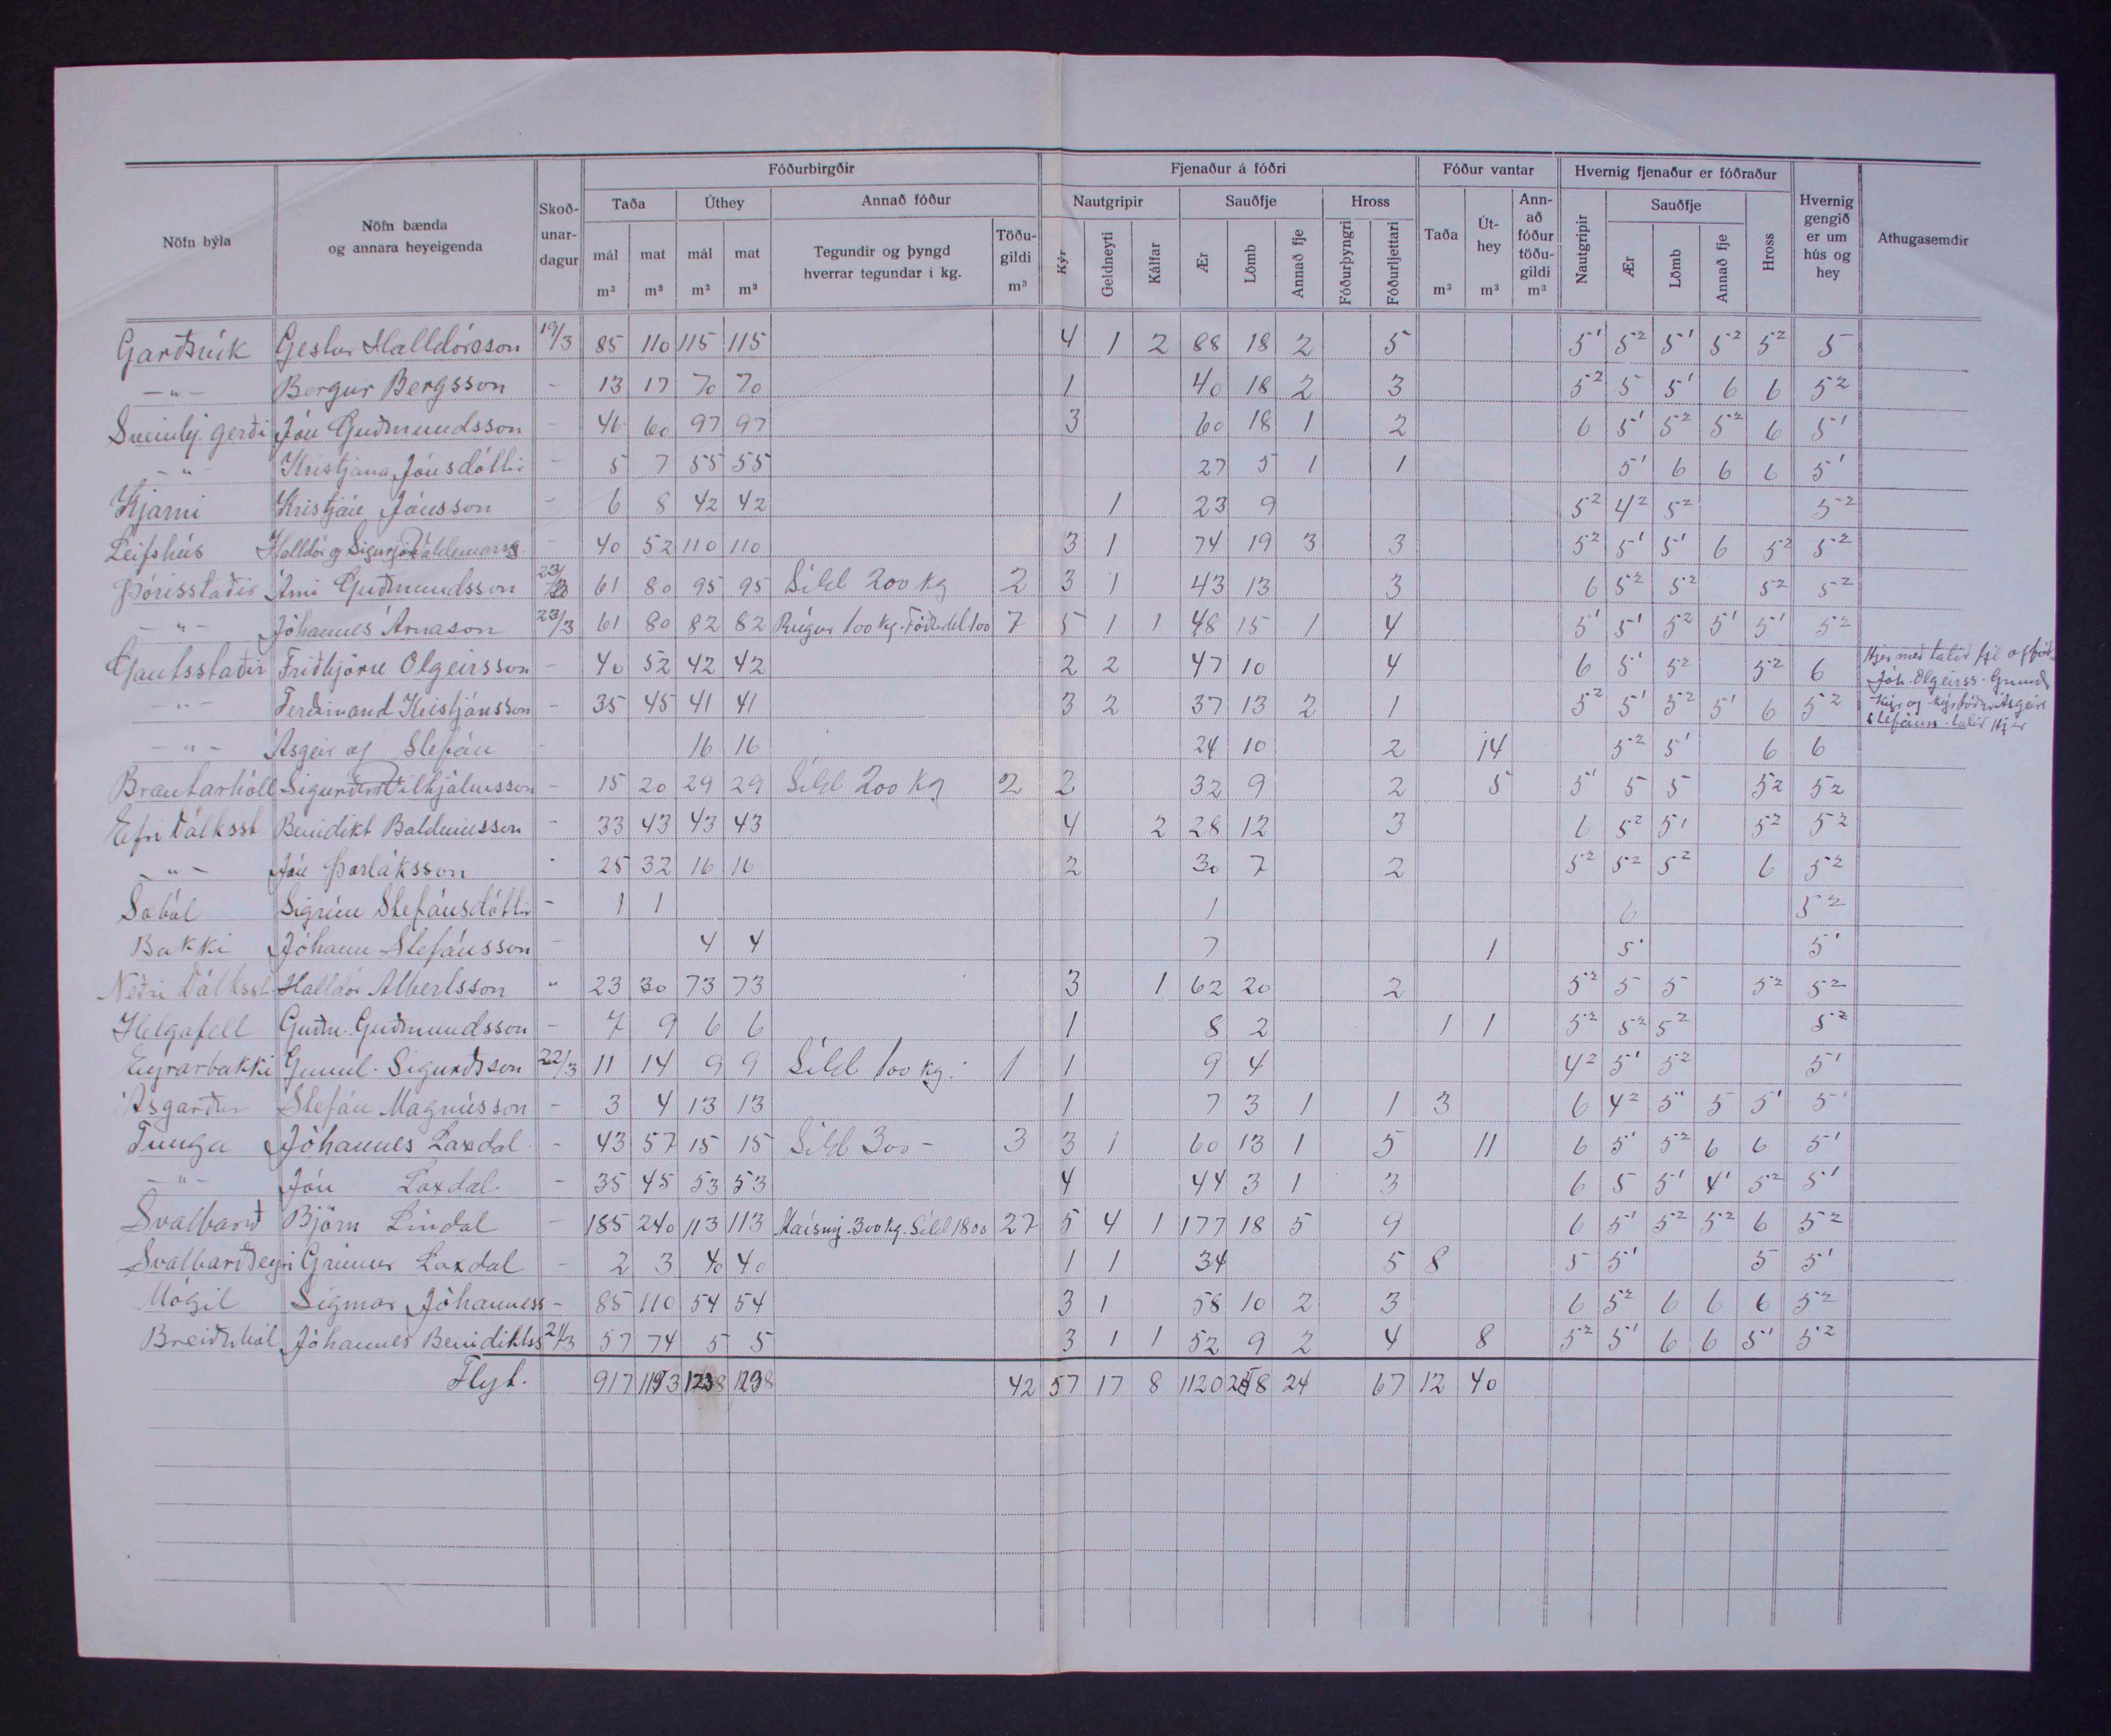 Fóðurbirgðir Fjenaður á fóðri Fóður vantar Hvernig fjenaður er fóðraður
Nöfn býla Nöfn bænda og annara heyeigenda Skoð-unar-dagur Taða Úthey Annað fóður Nautgripir Sauðfje Hross Taða Út-hey Ann-að fóður töðu-gildi Nautgripir Sauðfje Hross Hvernig gengið er um hús og hey Athugasemdir
mál m³ mat m³ mál m³ mat m³ Tegundir og þyngd hverrar tegundar í kg. Töðu-gildi m³ Kýr Geldneyti Kálfar Ær Lömb Annað fje Fóðurþyngri Fóðurljettari m³ m³ m³ Ær Lömb Annað fje
Garðsvík Gestur Halldórsson 19/3 85 110 115 115 4 1 2 88 18 2 5 5¹ 5² 5¹ 5² 5² 5
-"- Bergur Bergsson - 13 17 70 70 1 40 18 2 3 5² 5 5¹ 6 6 5²
Sveinbj. gerði Jón Guðmundsson - 46 60 97 97 3 60 18 1 2 6 5¹ 5² 5² 6 5¹
-"- Kristjana Jónsdóttir - 5 7 55 55 27 5 1 1 5¹ 6 6 6 5¹
Kjarni Kristján Jónsson - 6 8 42 42 1 23 9 5² 4² 5² 5²
Leifshús Halldór og Sigurjón Valdemarss. - 40 52 110 110 3 1 74 19 3 3 5² 5¹ 5¹ 6 5² 5²
Þórisstaðir Árni Guðmundsson 23/3 61 80 95 95 Síld 200 kg 2 3 1 43 13 3 6 5² 5² 5² 5²
-"- Jóhannes Árnason 23/3 61 80 82 82 Rúgur 100 kg. Fóðursíld 100 7 5 1 1 48 15 1 4 5¹ 5¹ 5² 5¹ 5¹ 5²
Gautsstaðir Friðbjörn Olgeirsson - 40 52 42 42 2 2 47 10 4 6 5¹ 5² 5² 6 Hjer með talið fje og fóð. Jóh. Olgeirss. Grund
-"- Ferdinand Kristjánsson - 35 45 41 41 3 2 37 13 2 1 5² 5¹ 5² 5¹ 6 5² Kýr og kýrfóður Ásgeirs Stefánss. talið hjer
-"- Ásgeir og Stefán - 16 16 24 10 2 14 5² 5¹ 6 6
Brautarhóll Sigurður Vilhjálmsson - 15 20 29 29 Síld 200 kg 2 2 32 9 2 5 5¹ 5 5 5² 5²
Efri Dálksst Benidikt Baldvinsson - 33 43 43 43 4 2 28 12 3 6 5² 5¹ 5² 5²
-"- Jón Þorláksson - 25 32 16 16 2 30 7 2 5² 5² 5² 6 5²
Sóból Sigrún Stefánsdóttir - 1 1 1 6 5²
Bakki Jóhann Stefánsson - 4 4 7 1 5¹ 5¹
Neðri Dálksst Halldór Albertsson " 23 30 73 73 3 1 62 20 2 5² 5 5 5² 5²
Helgafell Guðm. Guðmundsson - 7 9 6 6 1 8 2 1 1 5² 5² 5² 5²
Eyrarbakki Gunnl. Sigurðsson 22/3 11 14 9 9 Síld 100 kg. 1 1 9 4 4² 5¹ 5² 5¹
Ásgarður Stefán Magnússon - 3 4 13 13 1 7 3 1 1 3 6 4² 5¹ 5 5¹ 5¹
Tunga Jóhannes Laxdal - 43 57 15 15 Síld 300 - 3 3 1 60 13 1 5 11 6 5¹ 5² 6 6 5¹
-"- Jón Laxdal - 35 45 53 53 4 44 3 1 3 6 5 5¹ 4¹ 5² 5¹
Svalbarð Björn Líndal - 185 240 113 113 Maísmj. 300 kg. Síld 1800 27 5 4 1 177 18 5 9 6 5¹ 5² 5² 6 5²
Svalbarðseyri Grímur Laxdal - 2 3 40 40 1 1 34 5 8 5 5¹ 5 5¹
Mógil Sigmar Jóhanness - 85 110 54 54 3 1 58 10 2 3 6 5² 6 6 6 5²
Breiðaból Jóhannes Benidiktss 21/3 57 74 5 5 3 1 1 52 9 2 4 8 5² 5¹ 6 6 5¹ 5²
Flyt. 917 1193 1238 1238 42 57 17 8 1120 258 24 67 12 40